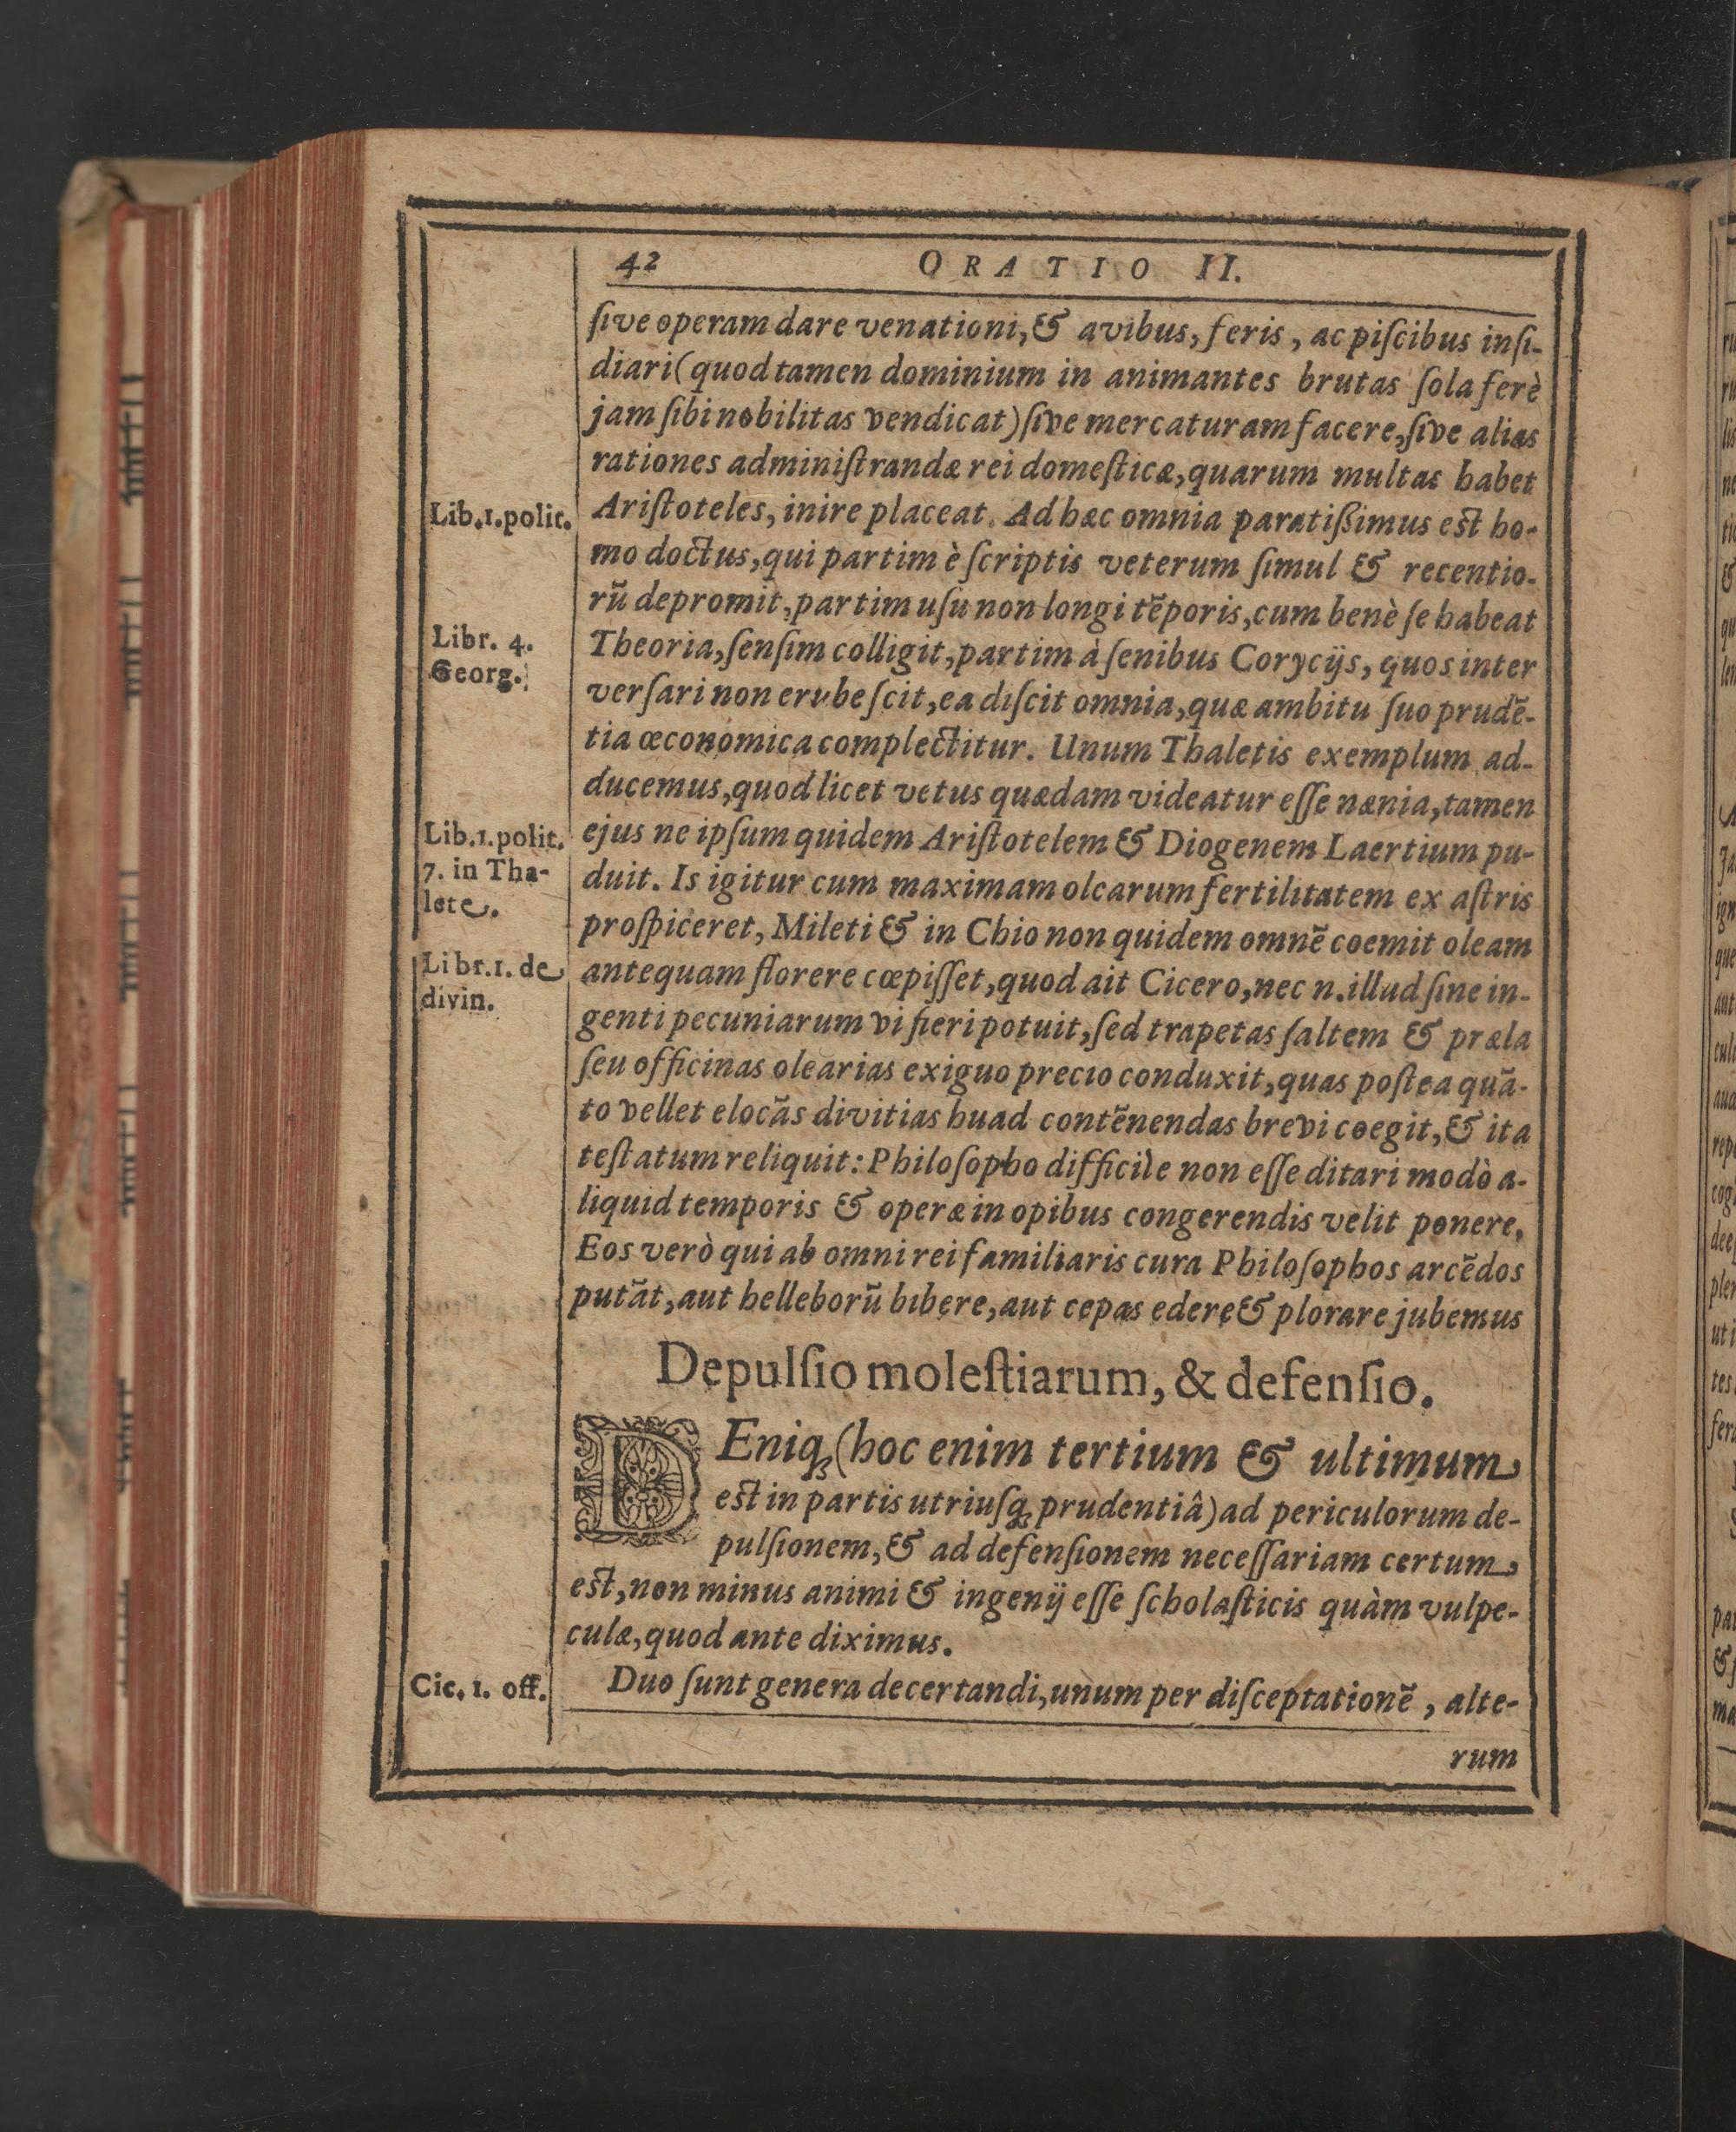 42 ORATIO II.
ſive operam dare venationi, & avibus, feris, ac piſcibus inſi-
diari (quod tamen dominium in animantes brutas ſola ferè
jam ſibi nobilitas vendicat) ſive mercaturam facere, ſive alias
rationes adminiſtrandæ rei domeſticæ, quarum multas habet
Lib. 1. polit.
Ariſtoteles, inire placeat. Ad hæc omnia paratißimus est ho-
mo doctus, qui partim è ſcriptis veterum ſimul & recentio-
rũ depromit, partim uſu non longi tẽporis, cum benè ſe habeat
Libr. 4.
Georg.
Theoria, ſenſim colligit, partim à ſenibus Corycijs, quos inter
verſari non erubeſcit, ea diſcit omnia, quæ ambitu ſuo prudẽ-
tia œconomica complectitur. Unum Thaletis exemplum ad-
ducemus, quod licet vetus quædam videatur eſſe nænia, tamen
Lib. 1. polit.
7. in Tha-
lete.
ejus ne ipſum quidem Ariſtotelem & Diogenem Laertium pu-
duit. Is igitur cum maximam olearum fertilitatem ex aſtris
proſpiceret, Mileti & in Chio non quidem omnẽ coemit oleam
Libr. 1. de
divin.
antequam florere cœpiſſet, quod ait Cicero, nec n. illud ſine in-
genti pecuniarum vi fieri potuit, ſed trapetas ſaltem & præla
ſeu officinas olearias exiguo precio conduxit, quas poſtea quã-
to vellet elocãs divitias huad contẽnendas brevi coegit, & ita
teſtatum reliquit: Philoſopho difficile non eſſe ditari modò a-
liquid temporis & operæ in opibus congerendis velit ponere,
Eos verò qui ab omni rei familiaris cura Philoſophos arcẽdos
putãt, aut helleborũ bibere, aut cepas edere & plorare jubemus
Depulſio moleſtiarum, & defenſio.
DEniq; (hoc enim tertium & ultimum
est in partis utriuſq; prudentiâ) ad periculorum de-
pulſionem, & ad defenſionem neceſſariam certum
est, non minus animi & ingenij eſſe ſcholaſticis quàm vulpe-
culæ, quod ante diximus.
Cic. 1. off.
Duo ſunt genera decertandi, unum per diſceptationẽ, alte-
rum